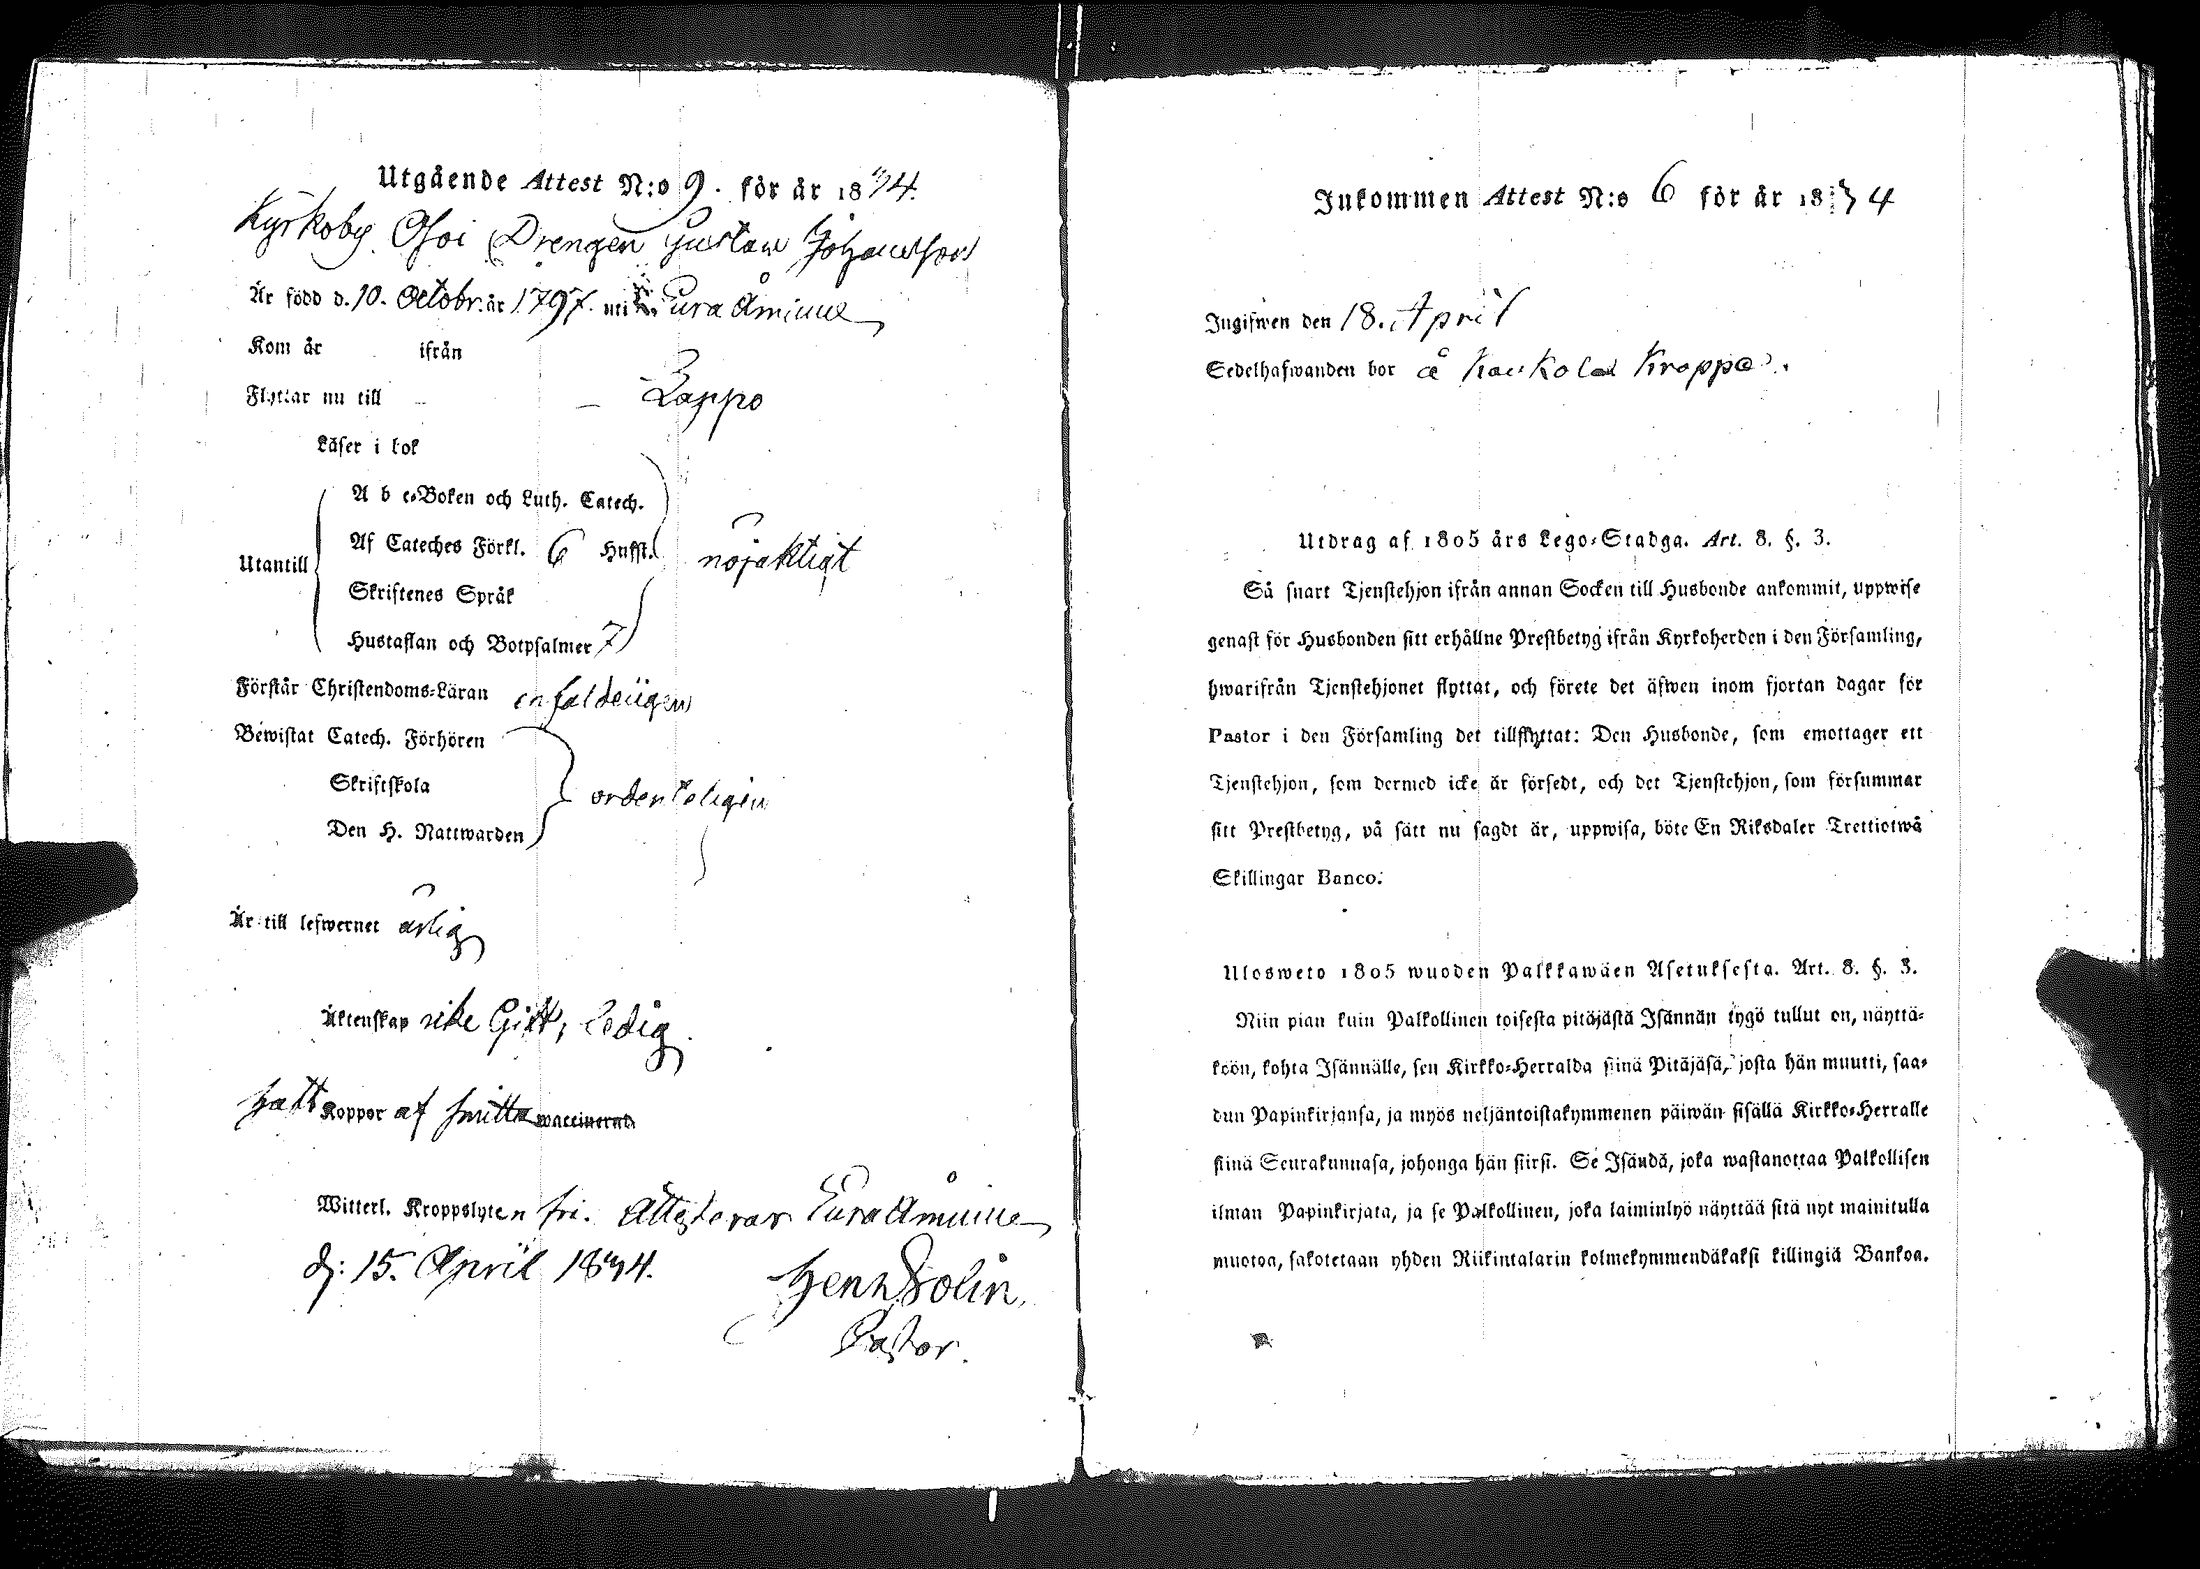 Utgående Attest N:o 9. för år 1834.
Kyrkoby Ojoi Drengen Gustaw Johansson
Är född d. 10. Octobr. år 1797. uti Eura Åminne
Kom år ifrån
Flyttar nu till — Lappo
Läser i bok
A b c-Boken och Luth. Catech.
Af Cateches Förkl. 6 Hufst. nöjaktigt
Utantill
Skriftenes Språk
Hustaflan och Botpsalmer 7
Förstår Christendoms-Läran enfaldeligen
Bewistat Catech. Förhören
Skriftskola
ordenteligen
Den H. Nattwarden
Är till lefwernet ärlig
Äktenskap icke Gift, ledig
haft Koppor af smitta waccinerad
Witterl. Kroppslyten fri. Attesterar Eura Åminne
d: 15. April 1834.
Henr Solin,
Pastor.
Inkommen Attest N:o 6 för år 1834
Ingifwen den 18. April
Sedelhafwanden bor å Kaukola Kroppa.
Utdrag af 1805 års Lego-Stadga. Art. 8. §. 3.
Så snart Tjenstehjon ifrån annan Socken till Husbonde ankommit, uppwise
genast för Husbonden sitt erhållne Prestbetyg ifrån Kyrkoherden i den Församling,
hwarifrån Tjenstehjonet flyttat, och förete det äfwen inom fjortan dagar för
Pastor i den Församling det tillflyttat: Den Husbonde, som emottager ett
Tjenstehjon, som dermed icke är försedt, och det Tjenstehjon, som försummar
sitt Prestbetyg, på sätt nu sagdt är, uppwisa, böte En Riksdaler Trettiotwå
Skillingar Banco.
Ulosweto 1805 wuoden Palkkawäen Asetuksesta. Art. 8. §. 3.
Niin pian kuin Palkollinen toisesta pitäjästä Isännän tygö tullut on, näyttä-
köön, kohta Isännälle, sen Kirkko-Herralda siinä Pitäjäsä, josta hän muutti, saa-
dun Papinkirjansa, ja myös neljäntoistakymmenen päiwän sisällä Kirkko-Herralle
siinä Seurakunnasa, johonga hän siirsi. Se Isändä, joka wastanottaa Palkollisen
ilman Papinkirjata, ja se Palkollinen, joka laiminlyö näyttää sitä nyt mainitulla
muotoa, sakotetaan yhden Riikintalarin kolmekymmendäkaksi killingiä Bankoa.